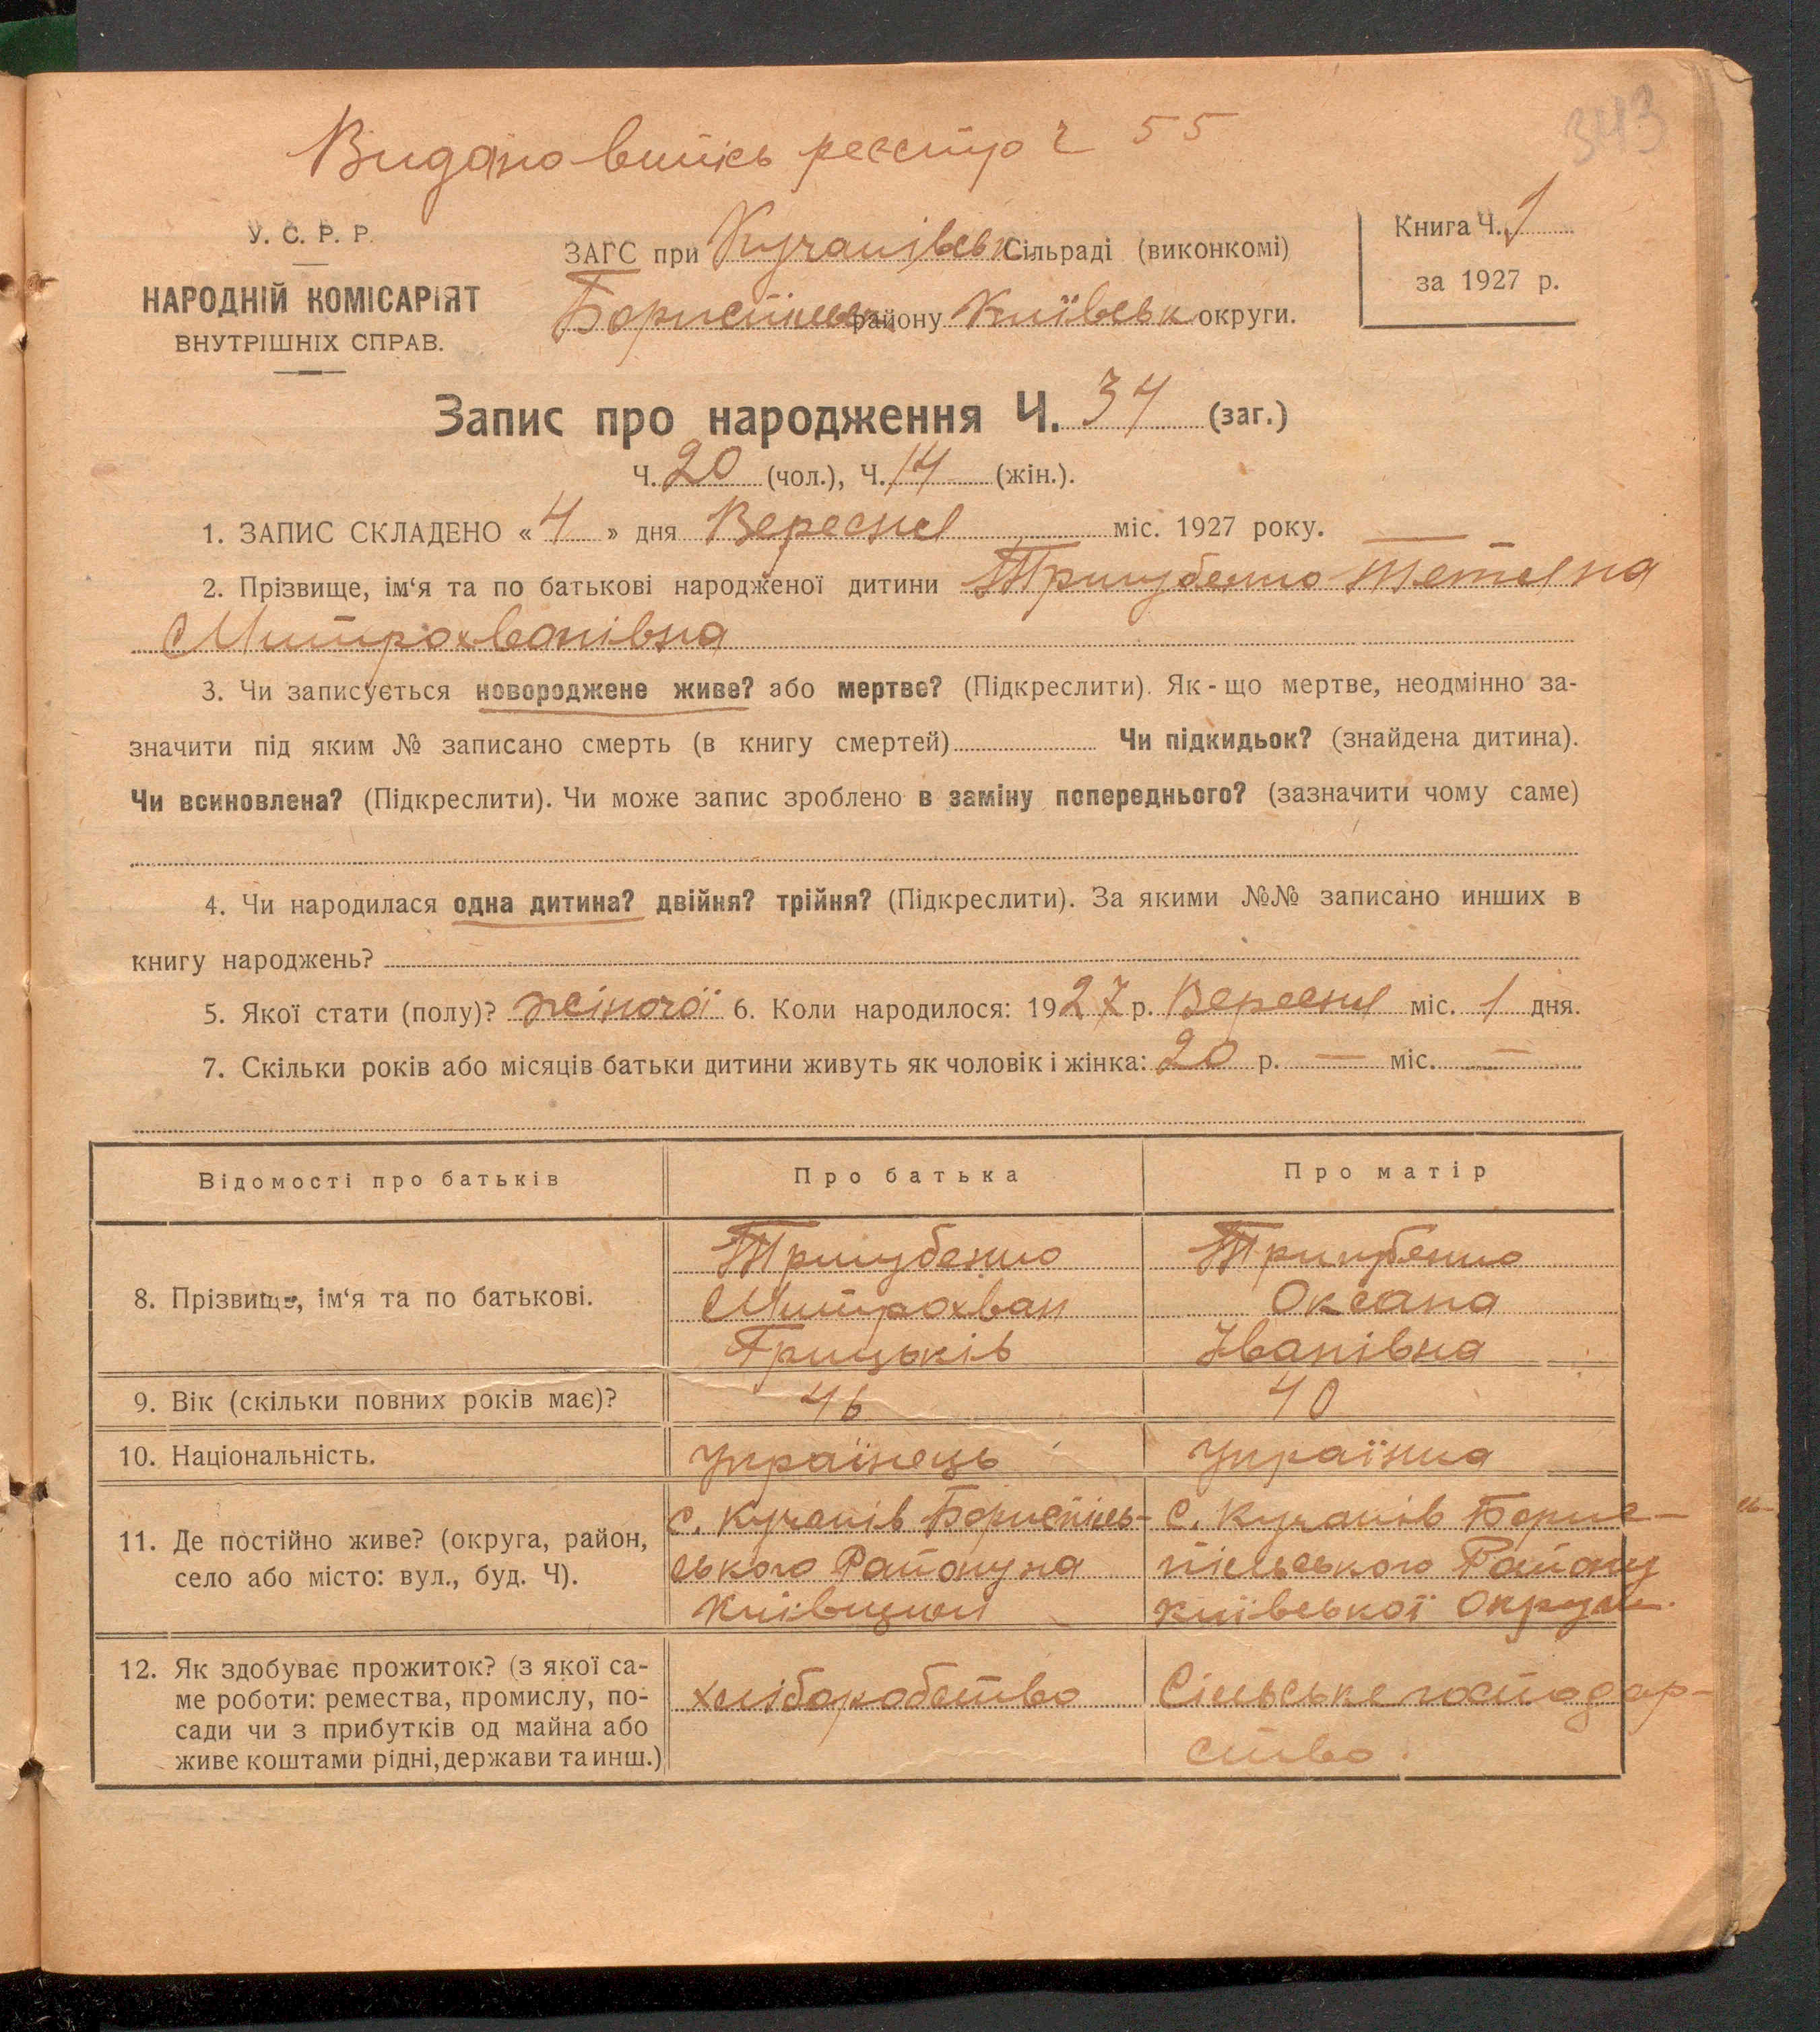 343
Видано випись реєстр ч 55
У. С. Р. Р.
НАРОДНІЙ КОМІСАРІЯТ
ВНУТРІШНІХ СПРАВ.
ЗАГС при Кучаківськ. Сільраді (виконкомі)
Бориспільськ району Київськ округи.
Книга Ч. 1
за 1927 р.
Запис про народження Ч. 34 (заг.)
Ч. 20 (чол.), Ч. 14 (жін.).
1. ЗАПИС СКЛАДЕНО « 4 » дня Вересня міс. 1927 року.
2. Прізвище, ім‘я та по батькові народженої дитини Тригубенко Тетяна
Митрохванівна
3. Чи записується новороджене живе? або мертве? (Підкреслити). Як-що мертве, неодмінно за-
значити під яким № записано смерть (в книгу смертей) Чи підкидьок? (знайдена дитина).
Чи всиновлена? (Підкреслити). Чи може запис зроблено в заміну попереднього? (зазначити чому саме)
4. Чи народилася одна дитина? двійня? трійня? (Підкреслити). За якими №№ записано инших в
книгу народжень?
5. Якої стати (полу)? жіночої 6. Коли народилося: 1927 р. Вересня міс. 1 дня.
7. Скільки років або місяців батьки дитини живуть як чоловік і жінка: 20 р. — міс. —
Відомості про батьків
Про батька
Про матір
8. Прізвище, ім‘я та по батькові.
Тригубенко
Митрохван
Грицьків
Тригубенко
Оксана
Іванівна
9. Вік (скільки повних років має)?
46
40
10. Національність.
Українець
Українка
11. Де постійно живе? (округа, район,
село або місто: вул., буд. Ч).
с. Кучаків Бориспіль-
ського Району на
Київщині
с. Кучаків Борис-
пільського Району
Київської Округи.
12. Як здобуває прожиток? (з якої са-
ме роботи: ремества, промислу, по-
сади чи з прибутків од майна або
живе коштами рідні, держави та инш.)
хліборобство
Сільське господар-
ство.